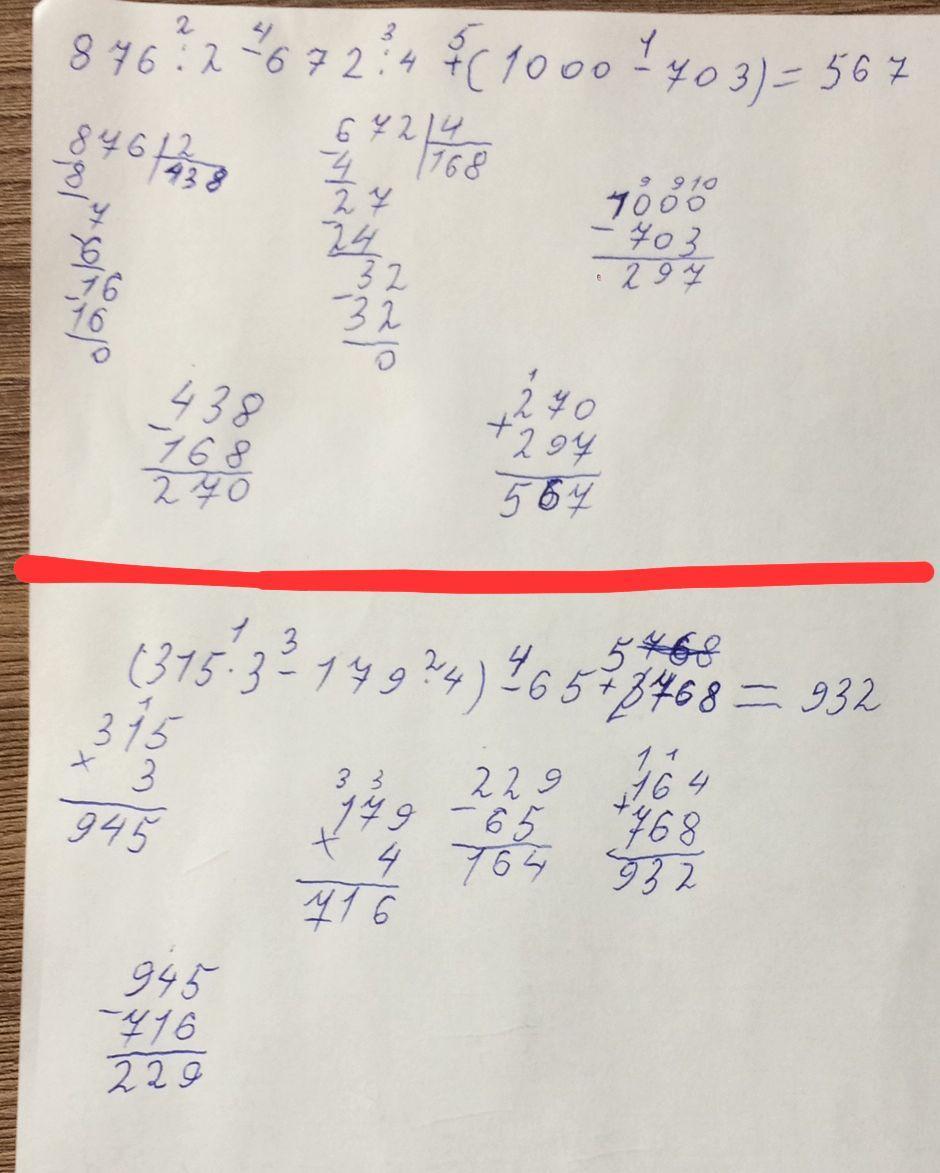 876 : 2 - 672 : 4 + (1000 - 703) = 567
2 4 3 5 1
876 | 2
8 438
7
6
16
16
0
672 | 4
4 168
27
24
32
32
0
9 9 10
1000
- 703
297
438
- 168
270
1
270
+ 297
567
1 3 2 4 5
(315 · 3 - 179 · 4) - 65 + 768 = 932
1
315
× 3
945
3 3
179
× 4
716
229
- 65
164
1 1
164
+ 768
932
945
- 716
229